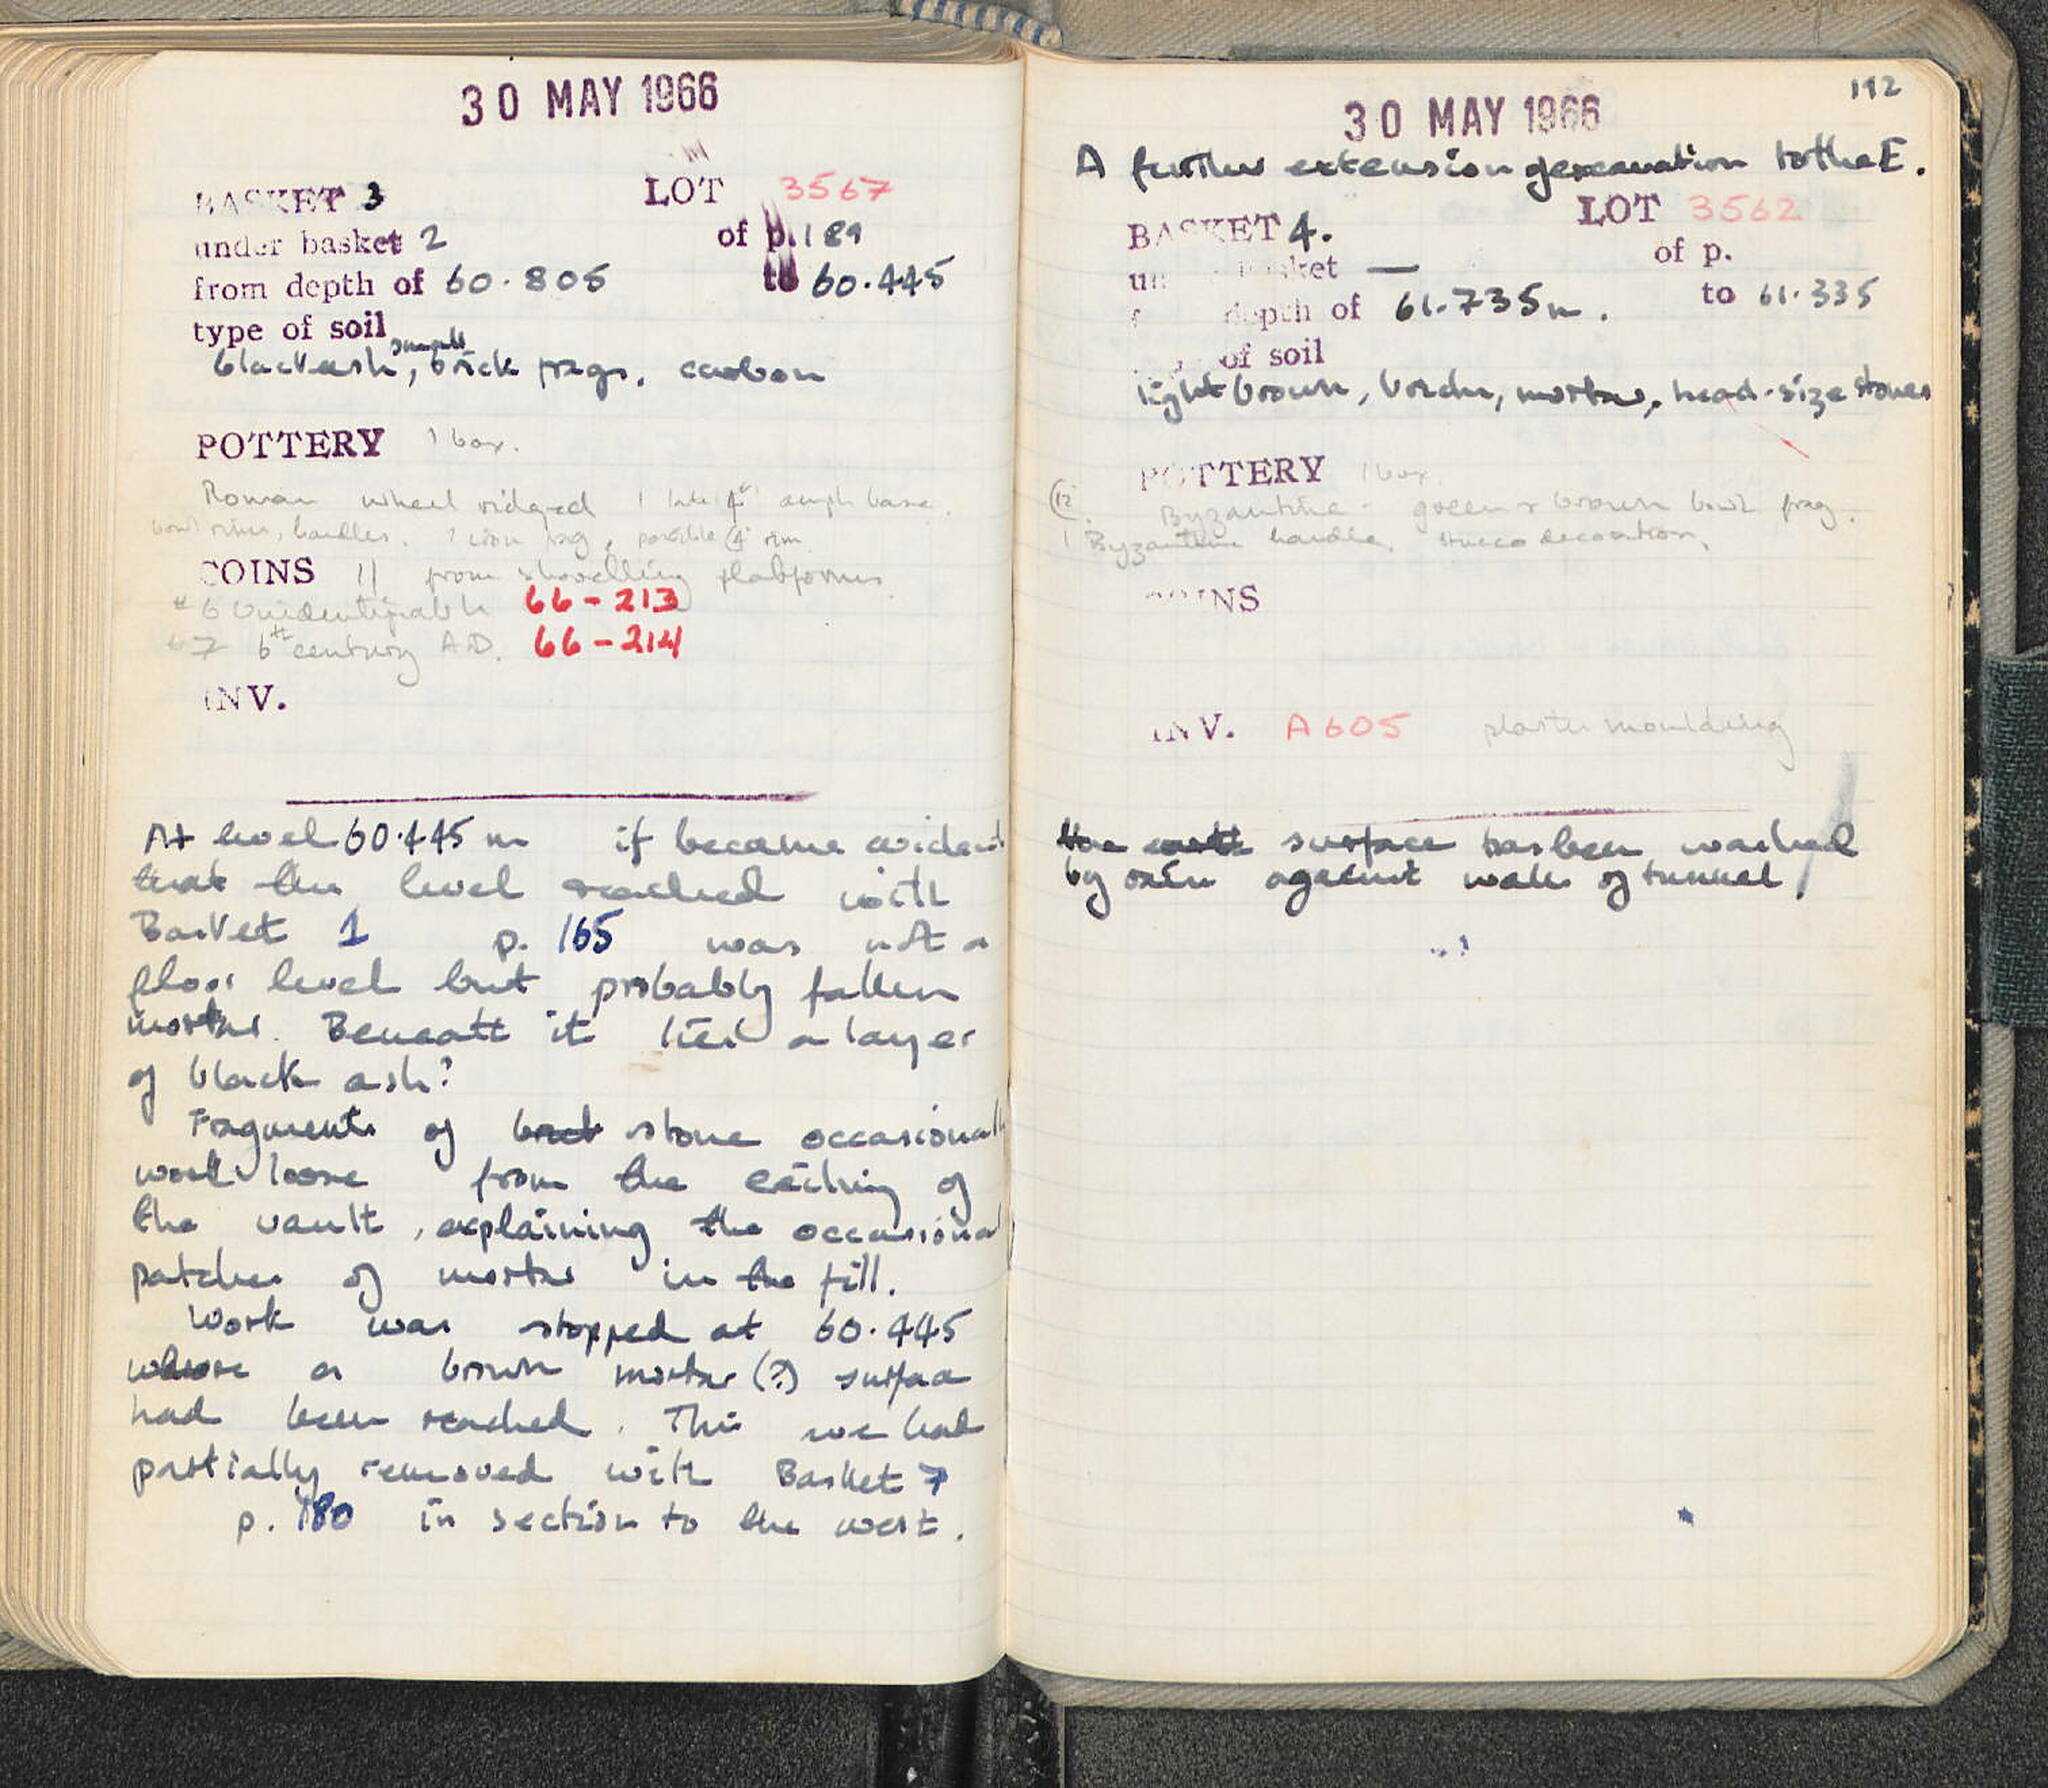 30 MAY 1966
BASKET 3 LOT 3567
under basket 2 of p. 189
from depth of 60.805 to 60.445
type of soil
black ash, small brick frags, carbon
POTTERY 1 box.
Roman wheel ridged 1 late amph base.
bowl rims, handles. 1 iron frag, possible rim
COINS from shovelling platforms
#6 Unidentifiable 66-213
#7 6th century A.D. 66-214
INV.
At level 60.445 m it became evident
that the level reached with
Basket 1 p. 165 was not a
floor level but probably fallen
mortar. Beneath it lies a layer
of black ash?
Fragments of brick stone occasionally
work loose from the ceiling of
the vault, explaining the occasional
patches of mortar in the fill.
Work was stopped at 60.445
where a brown mortar (?) surface
had been reached. This we had
partially removed with Basket 7
p. 180 in section to the west.
192
30 MAY 1966
A further extension of excavation to the E.
BASKET 4. LOT 3562
basket — of p.
depth of 61.735 m. to 61.335
of soil
light brown, bricks, mortar, head-size stones
POTTERY 1 box
12 Byzantine - green & brown bowl frag.
1 Byzantine handle, stucco decoration,
COINS
INV. A 605 plaster moulding
the earth surface has been washed
by rain against walls of tunnel.